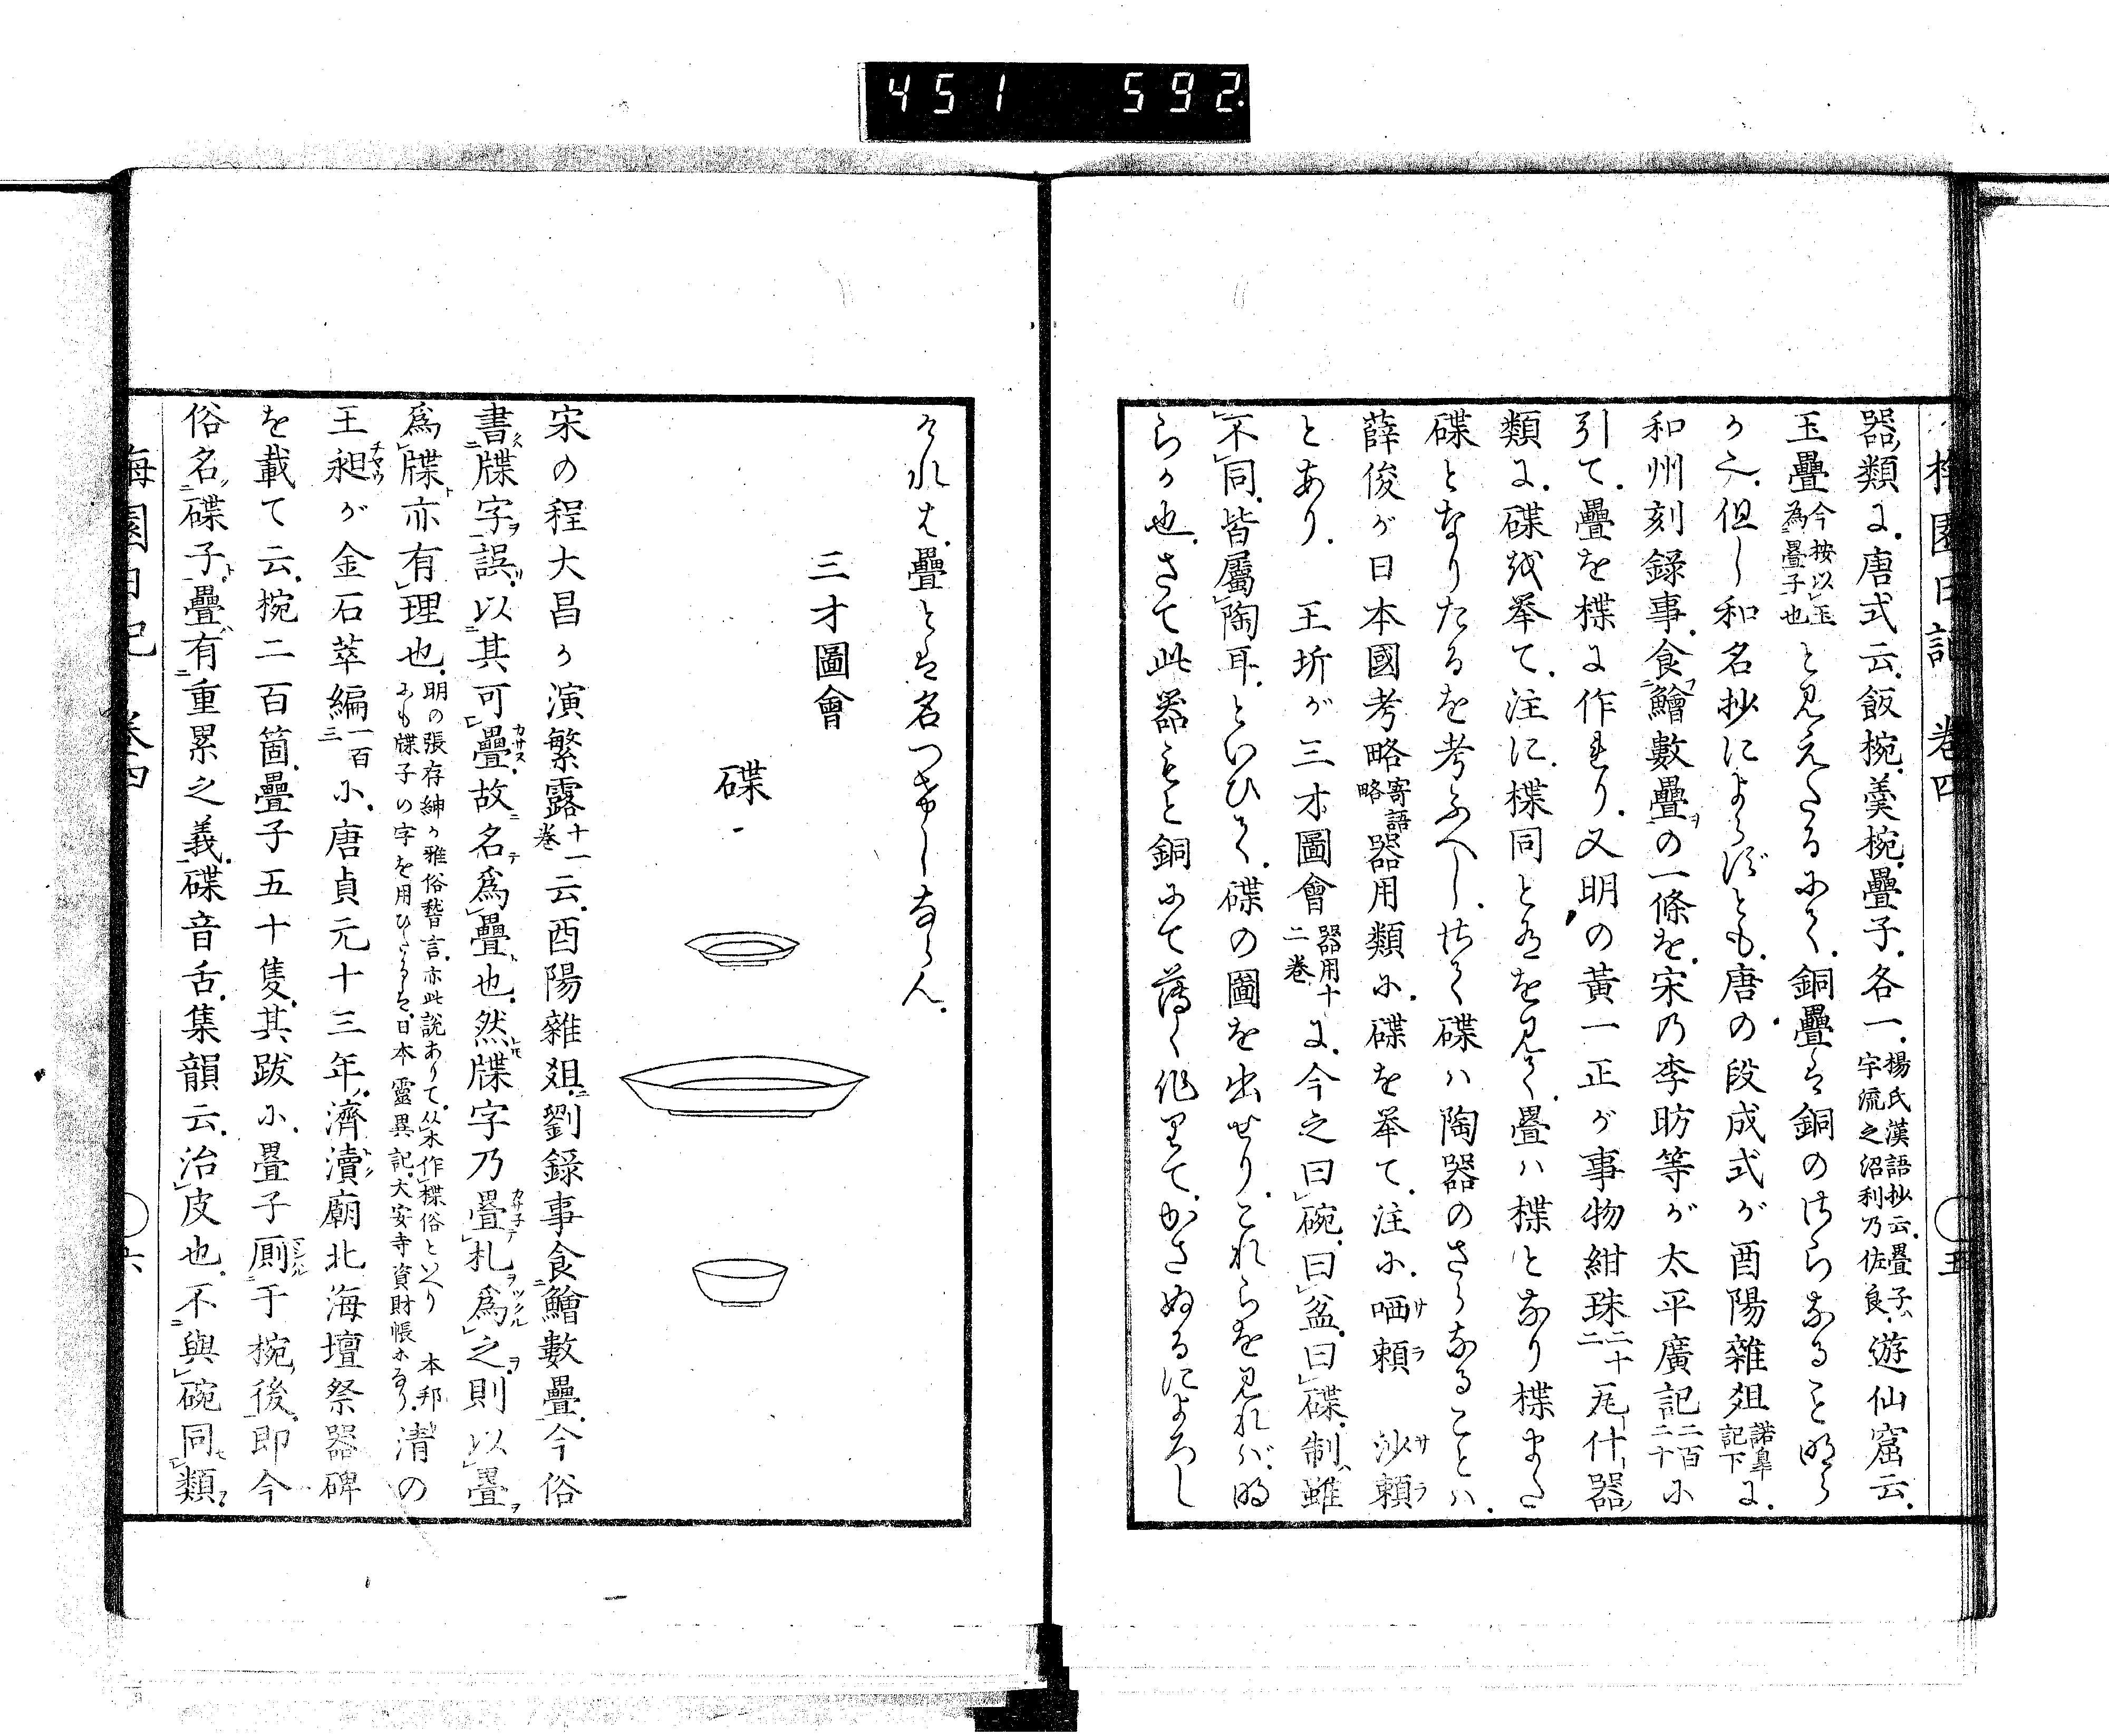 451 592
梅園日記 巻四 ○五
器類に、唐式云、飯椀、羹椀、疊子、各一、楊氏漢語抄云、疊子、宇流之沼利乃佐良、遊仙窟云、
玉疊今按以玉為疊子也と見えたるにて、銅疊は銅のさらなること明ら
か也、但し和名抄によらずとも、唐の段成式が酉陽雜俎諾皐記下に、
和州刻録事、食鱠數疊の一條を、宋乃李昉等が太平廣記二百二十に
引て、疊を楪に作れり、又明の黄一正が事物紺珠二十二瓦什器
類に、碟を挙て、注に、楪同とあるを見て、疊ハ楪となり楪また
碟となりたるを考ふべし、さて碟ハ陶器のさらなることハ、
薛俊が日本國考略寄語略器用類に、碟を挙て、注に、哂頼サラ 沙頼サラ
とあり、 王圻が三才圖會器用十二巻に、今之曰碗、曰盆、曰碟、制雖
不同、皆屬陶耳、といひて、碟の圖を出せり、これらを見れバ、明
らか也、さて此器もと銅にて薄く作りて、かさぬるによろし
ければ、疊とは名つけしならん、
三才圖會
碟
宋の程大昌が演繁露十一巻云、酉陽雜俎、劉録事食鱠數疊、今俗
書牒字誤、以其可疊故名爲疊也、然牒字乃疊札爲之、則以疊
爲牒亦有理也、明の張存紳が雅俗稽言、亦此説ありて、从木作楪俗といへり 本邦にも牒子の字を用ひたるは、日本靈異記、大安寺資財帳にあり、清の
王昶が金石萃編一百三に、唐貞元十三年、濟瀆廟北海壇祭器碑
を載て云、椀二百箇、疊子五十隻、其跋に、疊子厠于椀後、即今
俗名碟子、疊有重累之義、碟音舌、集韻云、治皮也、不與碗同類、
梅園日記 巻四 ○六